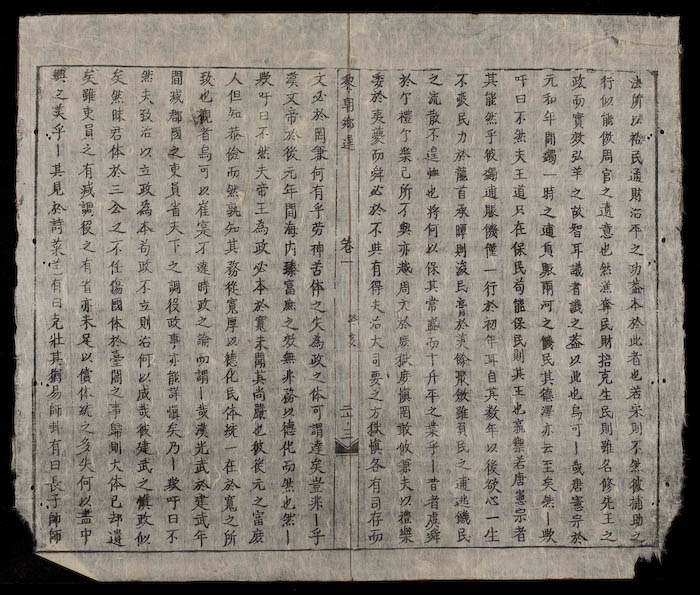 法所以裕民通財治平之功蓋本於此者也若宋則不然彼補助之
行似能倣周官之遺意也然漁奪民財掊克生民則雖名修先王之
政而實效弘羊之故智耳議者譏之蓋以此也烏可丨哉唐憲宗於
元和年間蠲一時之逋負賑兩河之饑民其德澤亦云至矣然丨歟
吁曰不然夫王道只在保民苟能保民則其王也孰禦若唐憲宗者
其能然乎彼蠲逋賑饑僅一行於初年耳自其数年以後欲心一生
不畏民力於龍首承暉則浚民膏於羨餘聚斂雖有民之逋逃饑民
之流散不遑恤也將何以保其常盛而丨升平之業乎丨昔者虞舜
於典禮典樂己所不與亦越周文於庶獄庶慎罔敢攸兼夫以禮樂
委於夷夔而舜必於不共有得夫治大司要之方獄慎各有司存而
黎朝鄉選 卷一
文必於罔兼何有乎劳神苦体之失為政之体可謂達矣豈非丨乎
漢文帝於後元年間海内臻富庶之效無非務以德化而然也然丨
歟吁曰不然夫帝王為政必本於寬未聞其尚嚴也彼後元之富庶
人但知恭儉而然孰知其務從寬厚以德化民体統一在於寬之所
致也觀者烏可以崔寔不達時政之論而謂丨哉漢光武於建武年
間减郡國之吏員省天下之調役政事亦能詳慎矣乃丨歟吁曰不
然夫致治以立政為本苟政不立則治何以成哉彼建武之慎政似
矣然昧君体於三公之不任傷國体於臺閣之事歸則大体已却遺
矣雖吏員之有减調役之有省亦未足以償体統之多失何以盡中
興之美乎丨其見於詩菜芑有曰克壯其猷易師卦有曰長子帥師